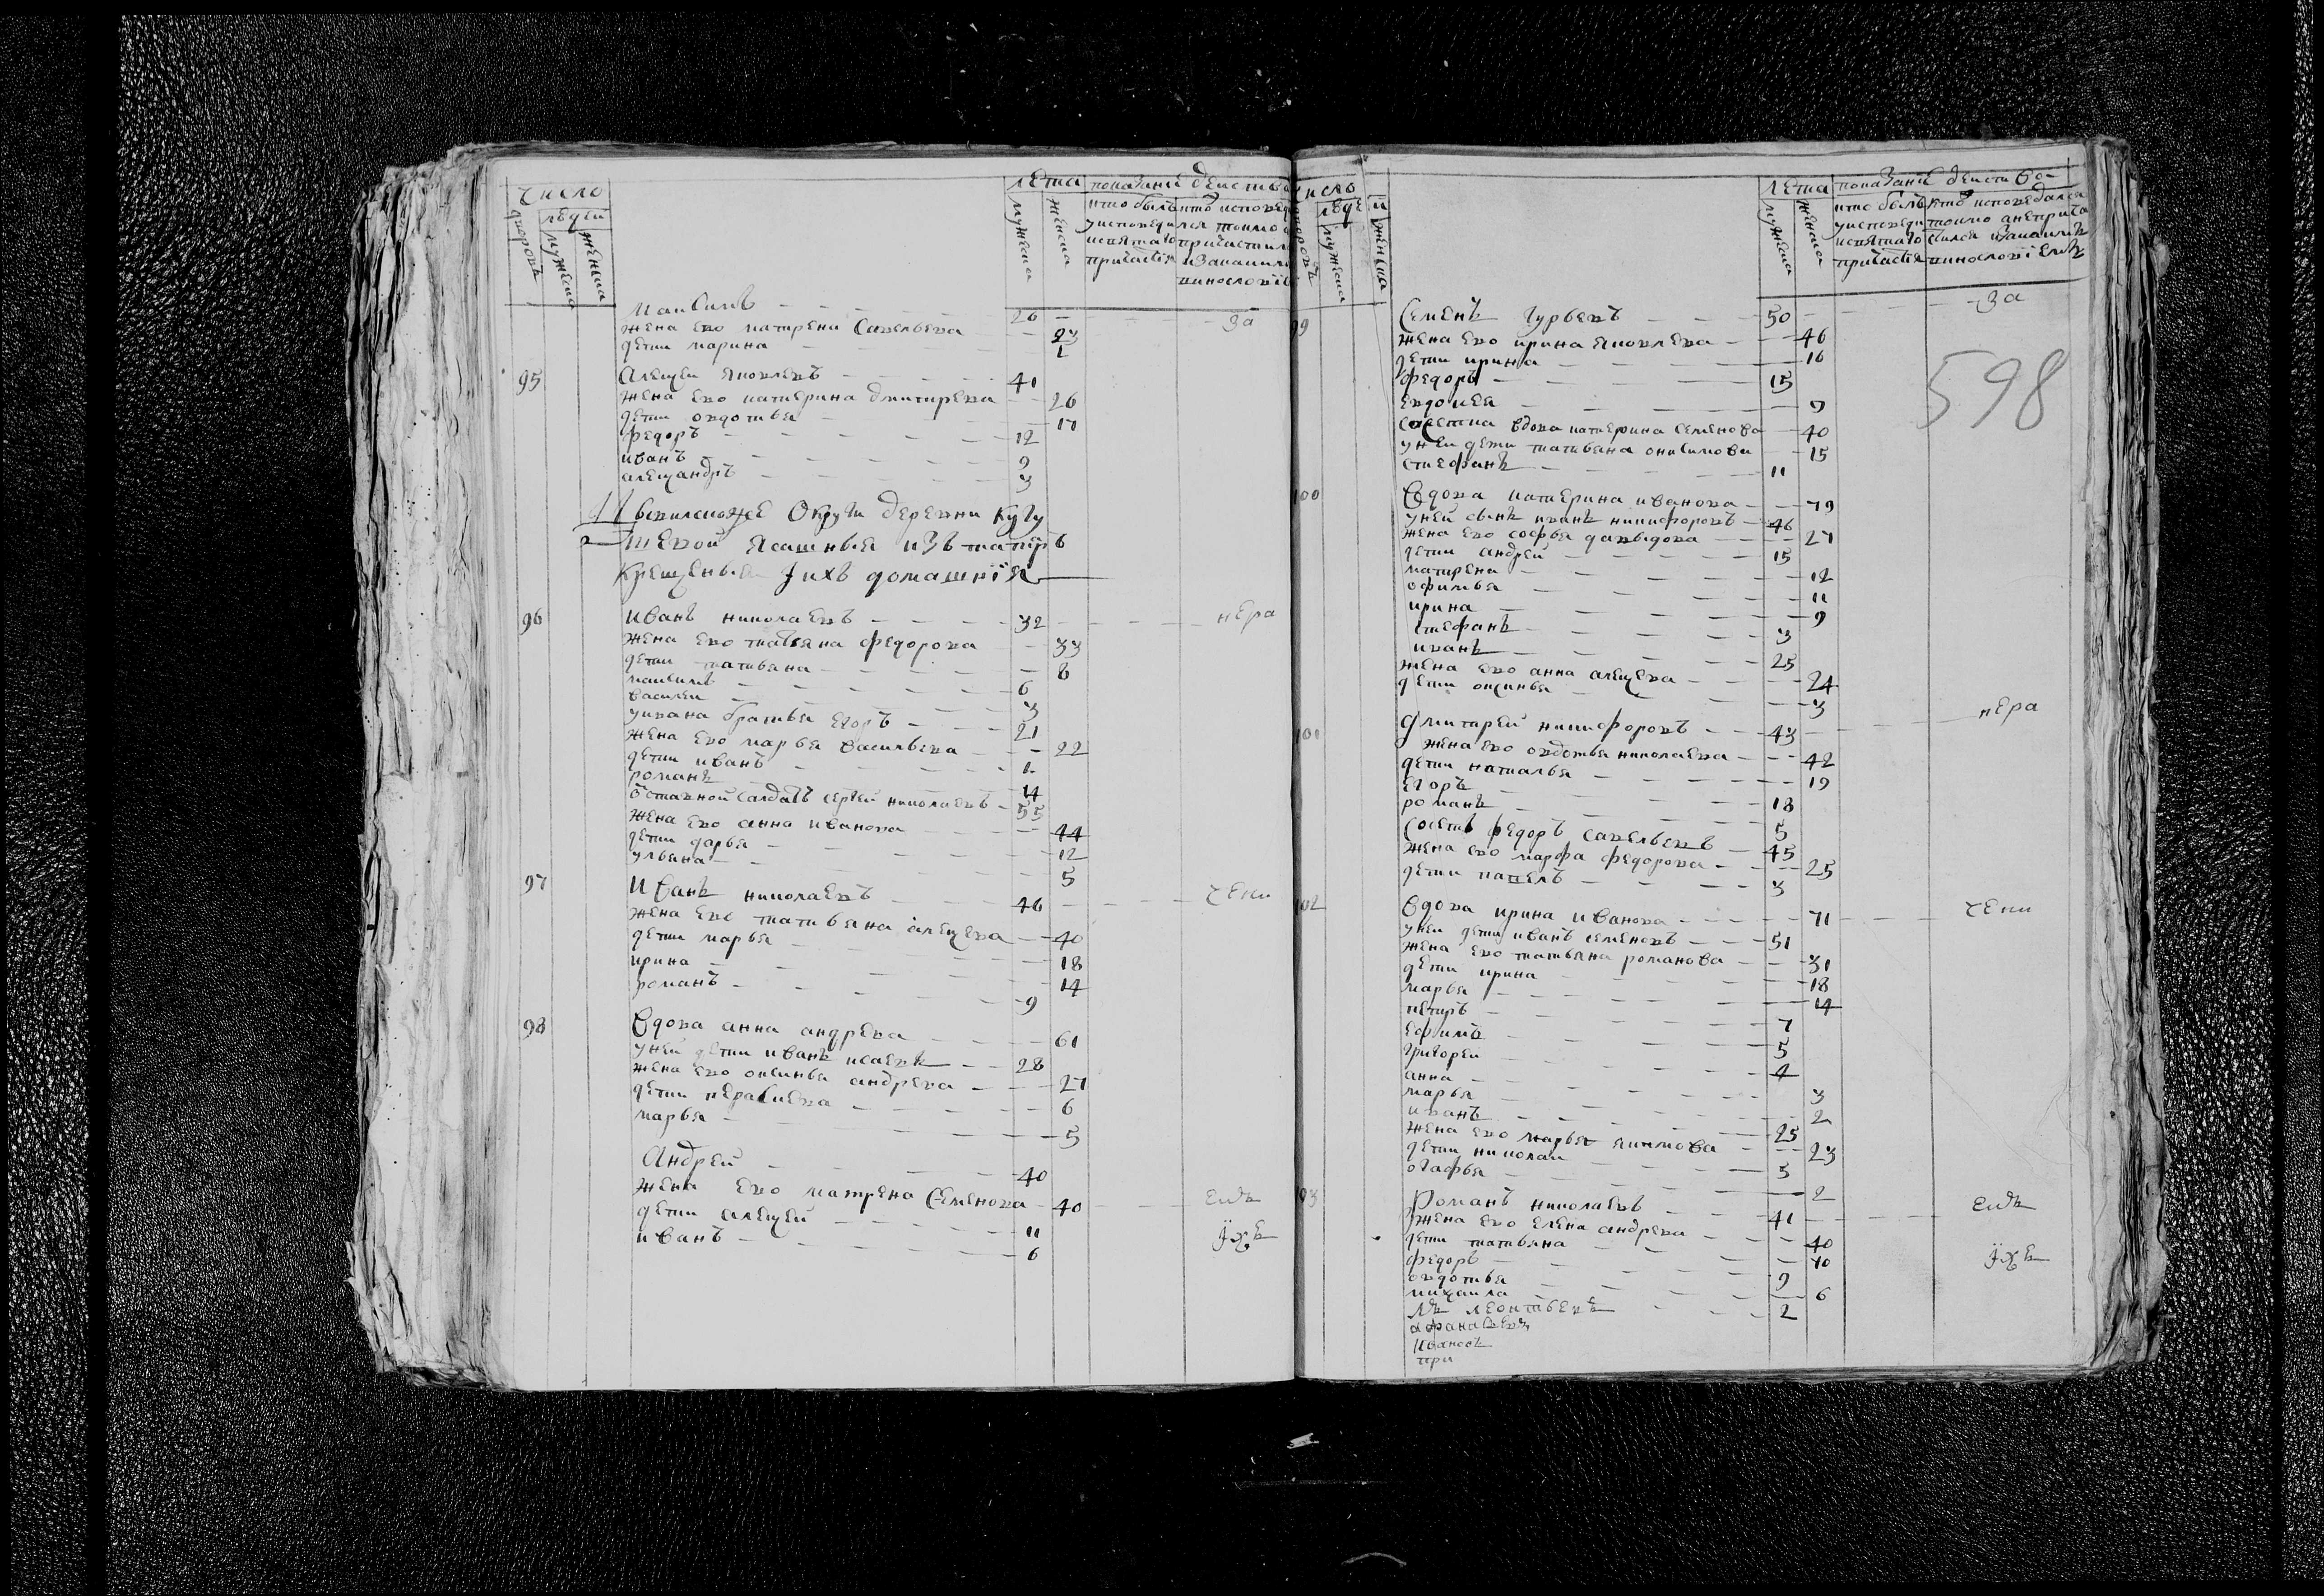 число
дворовъ
людеи
мужеска
женска
лета
мужеска
женска
показание деиства
кто былъ
у исповеди
и святаго
причастия
кто исповед
лся токмо а
причастил
и за каким
винословие
Максимъ 26 за
жена ево матрена савельева 23
дети марина 1
95 Алексеи яковлевъ 41
жена ево катерина дмитрева 26
дети овдотья 17
федоръ 12
иванъ 9
александръ 3
округи деревни
ясашныя изъ татаръ
крещеныя и ихъ домашния
96 иванъ николаевъ 32 нера
жена ево татьяна федорова 33
дети татьяна 8
максимъ 6
василеи 3
у ивана братья егоръ 21
жена ево марья васильева 22
дети иванъ 1
романъ 14
отставной салдатъ сергеи николаевъ 55
жена ево анна иванова 44
дети дарья 12
ульяна 5
97 Иванъ николаевъ 46 чени
жена ево татьяна алексева 40
дети марья 18
ирина 14
романъ 9
98 Вдова анна андрева 61
у ней дети иванъ исаевъ 28
жена ево оксинья андрева 27
дети парасковья 6
марья 5
Андреи 40
жена ево матрена семенова 40 емъ
дети алексеи 11
иванъ 6 ихъ
число
дворовъ
люде
и
мужеска
женска
лета
мужеска
женска
показание деиство
кто былъ
у исповеди
и святаго
причастия
кто исповедался
токмо а не прича
стился и за каимъ
винословиемъ
598
99 Семенъ гурьевъ 50 за
жена ево ирина яковлева 46
дети ирина 16
федоръ 15
евдокея 9
вдова катерина семенова 40
у неи дети татьяна онисимова 15
стефанъ 11
100 Вдова катерина иванова 79
у ней сынъ иванъ никифоровъ 46
жена ево софья давыдова 27
дети андреи 15
матрена 12
офимья 11
ирина 9
стефанъ 3
иванъ 25
жена ево анна алексева 24
дети оксинья 3
101 Дмитреи никифоровъ 43 нера
жена ево овдотья николаева 42
дети наталья 19
егоръ 18
романъ 5
федоръ савельевъ 45
жена ево марфа федорова 25
дети павелъ 3
102 Вдова ирина иванова 71 чени
у неи дети иванъ семеновъ 51
жена ево татьяна романова 31
дети ирина 18
марья 14
петръ 7
ефимъ 5
григореи 4
анна 3
марья 2
иванъ 25
жена ево марья якимова 23
дети николаи 3
огафья 2
93 Романъ николаевъ 41 емъ
жена ево елена андрева 40
дети татьяна 10 ихъ
федоръ 9
овдотья 6
михаила 2
леонтьевъ
афанасьевъ
Ивановъ
при